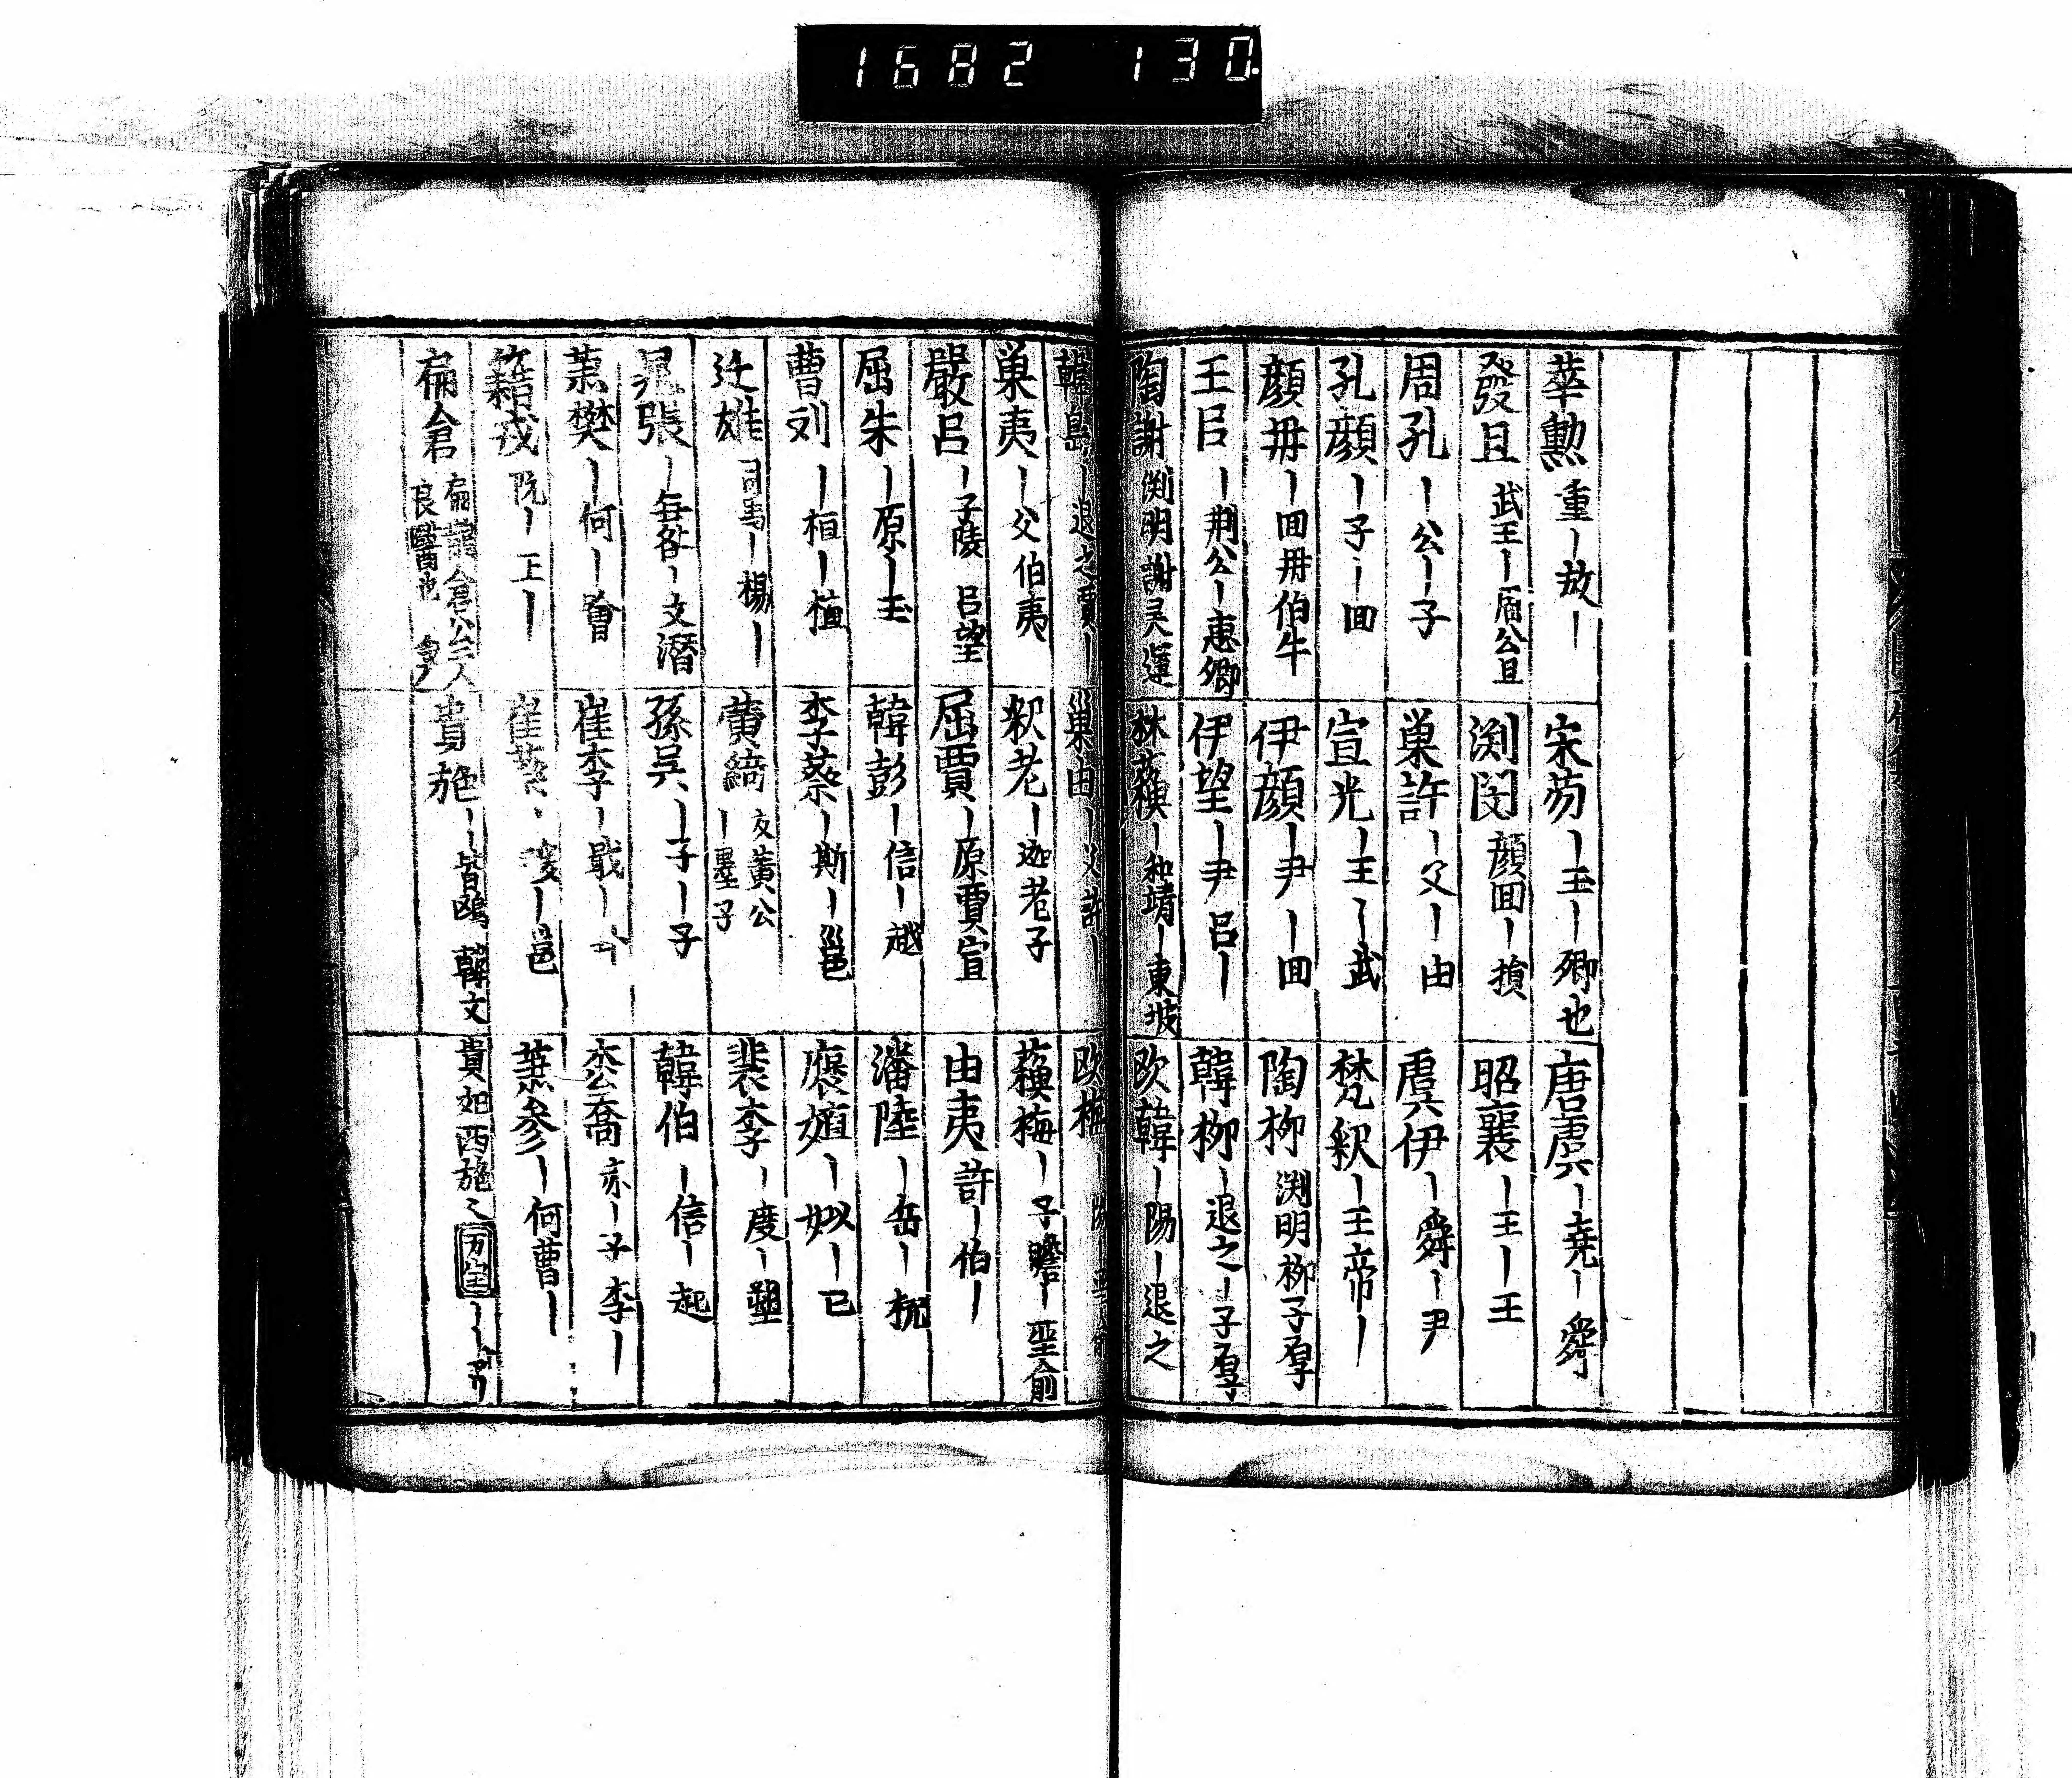 1682 130
華勲 重丨放丨
宋芴丨玉丨卿也
唐虞丨尭丨舜
發且 武王丨周公旦
渕閔 顔回丨損
昭襄丨王丨王
周孔丨公丨子
巣許丨父丨由
虞伊丨舜丨尹
孔顔丨子丨回
宣光丨王丨武
梵釈丨王帝丨
顔冊丨回冊伯牛
伊顔丨尹丨回
陶柳 渕明柳子厚
王呂丨荆公丨恵卿
伊望丨尹呂丨
韓柳丨退之丨子厚
陶謝 渕明謝灵運
林蘓丨和靖丨東坡
欧韓丨陽丨退之
韓島丨退之賈丨
巣由丨父許丨
欧梅丨陽丨聖俞
巣夷丨父伯夷
釈老丨迦老子
蘓梅丨子瞻丨聖俞
嚴呂丨子陵 呂望
屈賈丨原賈宜
由夷 許丨伯丨
屈朱丨原丨玉
韓彭丨信丨越
潘陸丨岳丨杭
曹刘丨桓丨植
李蔡丨斯丨邕
褒妲丨姒丨已
迁雄 司馬丨楊丨
黄綺 友黄公丨墨子
裴李丨度丨塑
晁張丨無咎丨文潜
孫吴丨子丨子
韓伯丨信丨起
蕭樊丨何丨噲
崔李丨戢丨
喬 赤丨子李丨
籍戎 阮丨王丨
崔蔡丨丨邕
蕭参丨何曹丨
扁倉 扁鵲倉公二人良醫也
貴施丨丨皆鴟 韓文
貴妃西施